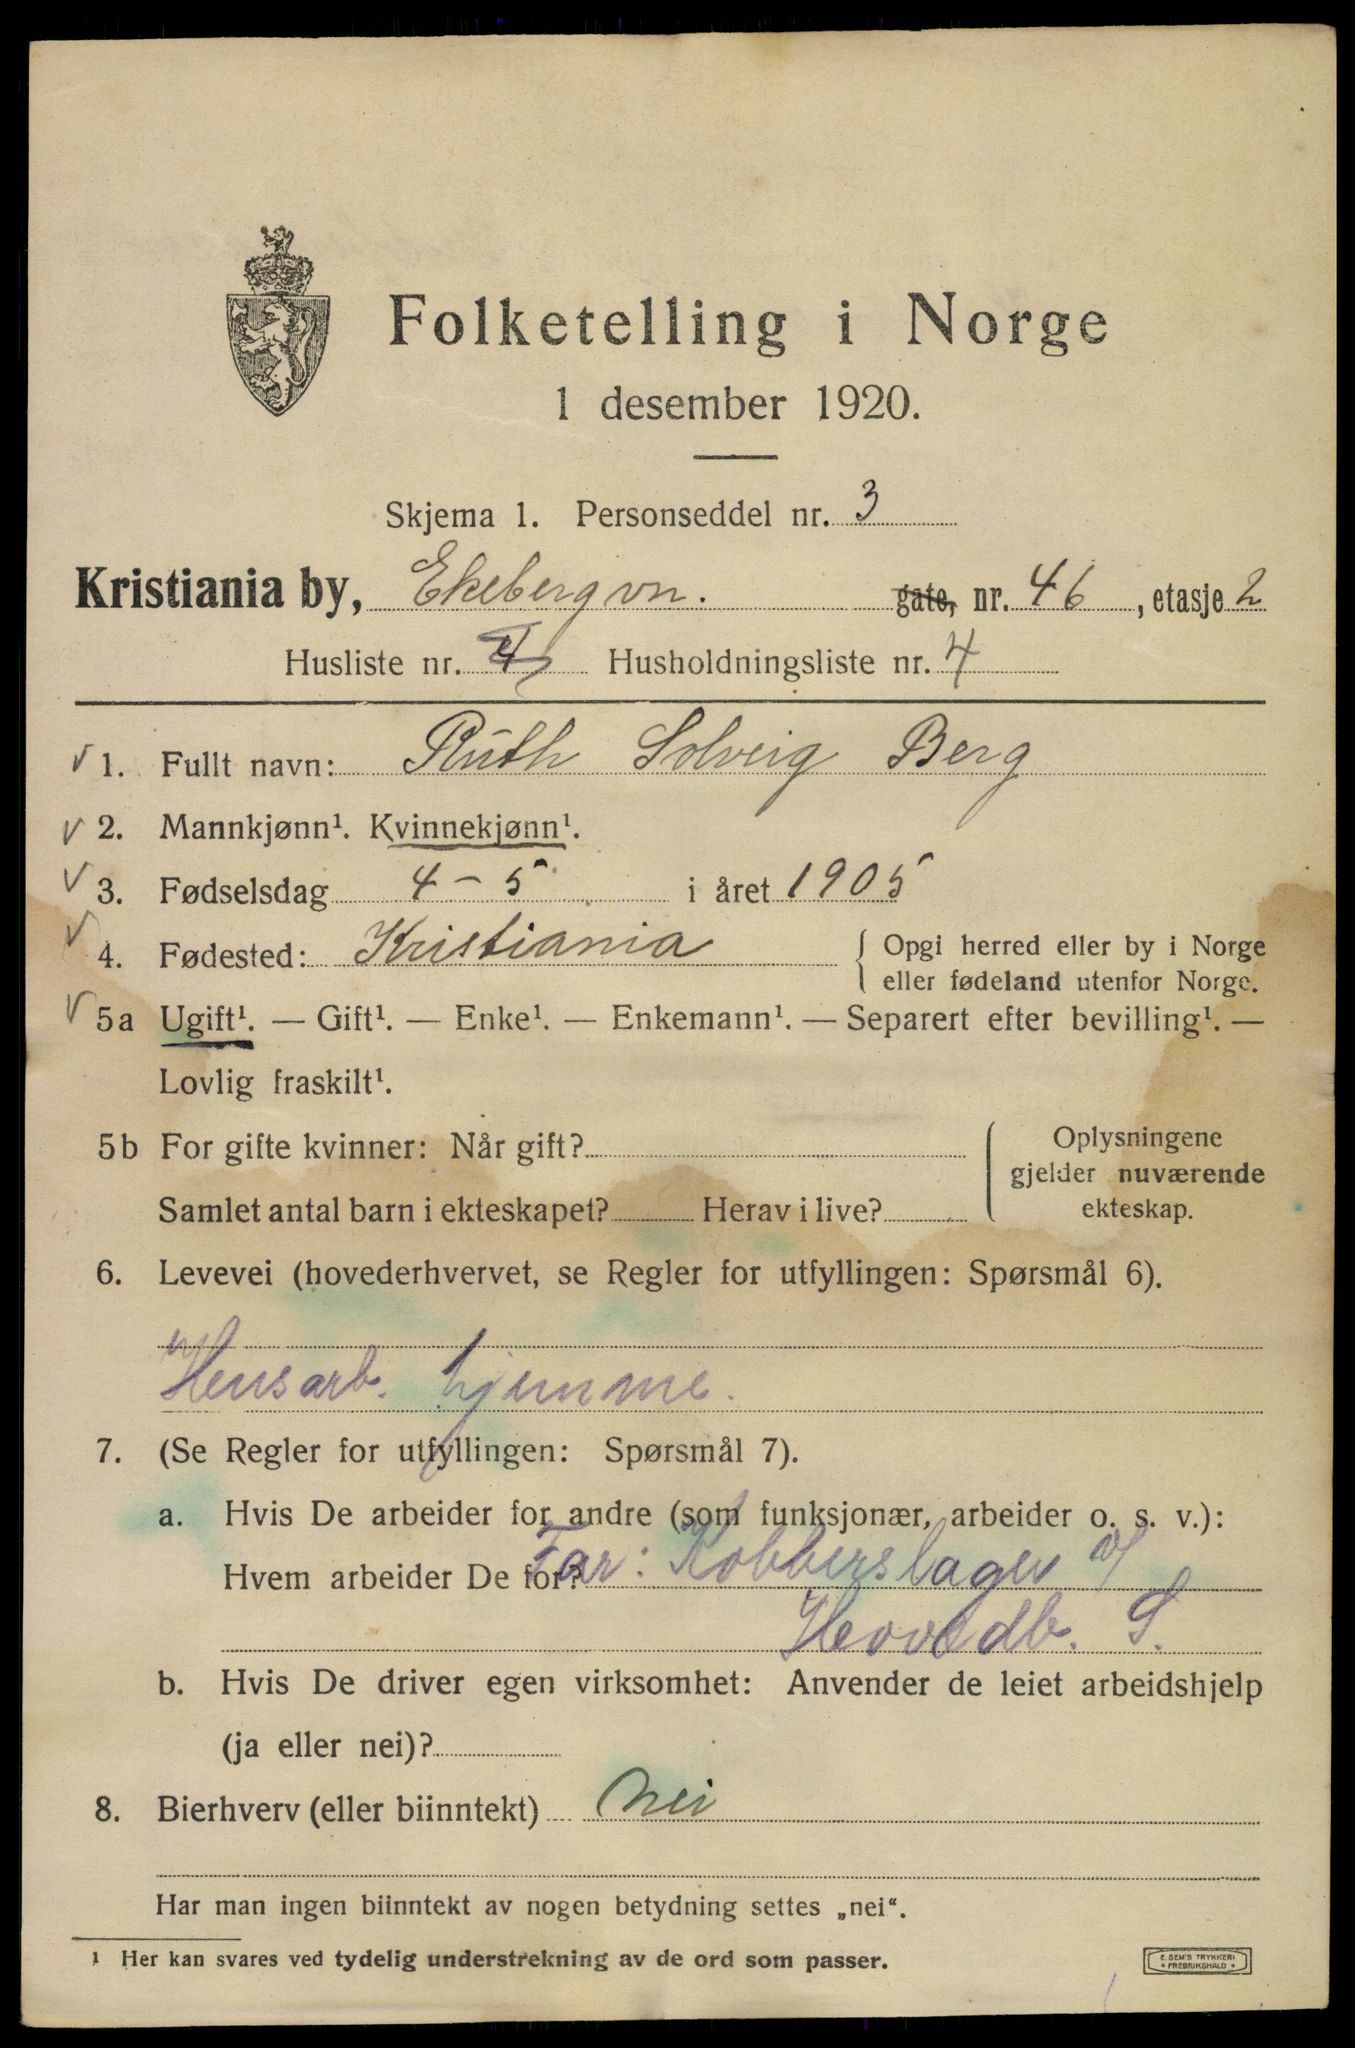 Folketelling i Norge
1 desember 1920.
Skjema 1. Personseddel nr. 3
Kristiania by, Ekebergvn. gate, nr. 46, etasje 2
Husliste nr. 4 Husholdningsliste nr. 4
√ 1. Fullt navn: Ruth Solveig Berg
√ 2. Mannkjønn¹. Kvinnekjønn¹.
√ 3. Fødselsdag 4 – 5 i året 1905
√ 4. Fødested: Kristiania { Opgi herred eller by i Norge
eller fødeland utenfor Norge.
√ 5a Ugift¹. — Gift¹. — Enke¹. — Enkemann¹. — Separert efter bevilling¹. —
Lovlig fraskilt¹.
5b For gifte kvinner: Når gift? Oplysningene
gjelder nuværende
Samlet antal barn i ekteskapet? Herav i live? ekteskap.
6. Levevei (hovederhvervet, se Regler for utfyllingen: Spørsmål 6).
Husarb. hjemme.
7. (Se Regler for utfyllingen: Spørsmål 7).
a. Hvis De arbeider for andre (som funksjonær, arbeider o. s. v.):
Hvem arbeider De for? Far: Kobberslager v/
Hovedb. S.
b. Hvis De driver egen virksomhet: Anvender de leiet arbeidshjelp
(ja eller nei)?
8. Bierhverv (eller biinntekt) Nei
Har man ingen biinntekt av nogen betydning settes „nei“.
1 Her kan svares ved tydelig understrekning av de ord som passer.
E. SEM'S TRYKKERI
• FREDRIKSHALD •